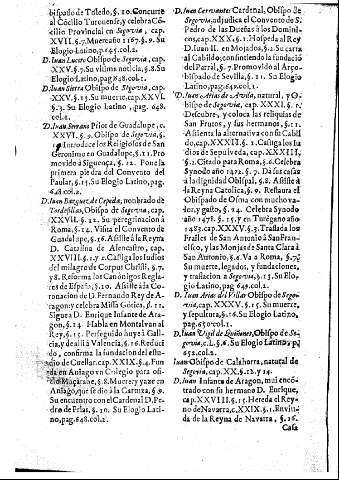 bispado de Toledo, §. 10. Concurre
al Cõcilio Turonense, y celebra Cõ-
cilio Provincial en Segovia, cap.
XVII. §. 7. Muere año 1167. §. 9. Su
Elogio Latino, p. 645. col. 2.
D. Iuan Lucero Obispo de Segovia, cap.
XXV. §. 7. Su vltima noticia, §. 8. Su
Elogio Latino, pag. 648. col. 1.
D. Iuan Sierra Obispo de Segovia, cap.
XXV. §. 1. Su muerte, cap. XXVI.
§. 3. Su Elogio Latino, pag. 648.
col. 2.
D. Iuan Serrano Prior de Guadalupe, c.
XXVI. §. 9. Obispo de Segovia, §.
Introduce los Religiosos de San
Geronimo en Guadalupe, §. 11. Pro-
movido à Siguença, §. 12. Pone la
primera piedra del Convento del
Paular, §. 15. Su Elogio Latino, pag.
648. col. 2.
D. Iuan Vazquez de Cepeda, nombrado de
Tordesillas, Obispo de Segovia, cap.
XXVII. §. 22. Su peregrinacion à
Roma, §. 24. Visita el Convento de
Guadalupe, §. 26. Assiste à la Reyna
D. Catalina de Alencastro, cap.
XXVIII. §. 1. 7. 2. Castiga los Iudios
del milagro de Corpus Christi, §. 7.
y 8. Reforma los Canonigos Regla-
res de España, §. 20. Assiste à la Co-
ronacion de D. Fernando Rey de A-
ragon, y celebra Missa Gotica, §. 12.
Sigue à D. Enrique Infante de Ara-
gon, §. 14. Habla en Montalvan al
Rey, §. 15. Perseguido huye à Gali-
cia, y de alli à Valencia, §. 16. Reduci-
do, confirma la fundacion del estu-
dio de Cuellar, cap. XXIX. §. 4. Fun-
da en Aniago vn Colegio para ofi-
cio Muçarabe, §. 8. Muere, y yaze en
Aniago, que se diò à la Cartuxa, §. 9.
Su encuentro con el Cardenal D. Pe-
dro de Frias, §. 10. Su Elogio Lati-
no, pag. 648. col. 2.
D. Iuan Cervantes Cardenal, Obispo de
Segovia, adjudica el Convento de S.
Pedro de las Dueñas à los Domini-
cos, cap. XXX. §. 1. Hospeda al Rey
D. Iuan II. en Mojados, §. 2. Su carta
al Cabildo, consintiendo la fundacion
del Parral, §. 7. Promovido al Arço-
bispado de Sevilla, §. 11. Su Elogio
Latino, pag. 649. col. 1.
D. Iuan Arias de Avila, natural, y O-
bispo de Segovia, cap. XXXI. §. 1.
Descubre, y coloca las reliquias de
San Frutos, y sus hermanos, §. 11.
Assienta la alternativa con su Cabil-
do, cap. XXXII. §. 1. Castiga los Iu-
dios de Sepulveda, cap. XXXIII,
§. 2. Citado para Roma, §. 6. Celebra
Synodo año 1472. §. 9. Dà sus casas
à la dignidad Obispal, §. 8. Assiste à
la Reyna Catolica, §. 9. Restaura el
Obispado de Osma con mucho va-
lor, y gasto, §. 24. Celebra Synodo
año 1475. §. 15. y en Turêgano año
1483. cap. XXXV. §. 3. Traslada los
Frailes de San Antonio à San Fran-
cisco, y las Monjas de Santa Clara à
San Antonio, §. 6. Va à Roma, §. 7.
Su muerte, legados, y fundaciones,
y traslacion à Segovia, §. 13. Su
Elogio Latino, pag. 649. col. 2.
D. Iuan Arias del Villar Obispo de Sego-
via, cap. XXXV. §. 15. Su muerte,
y sepultura, §. 16. Su Elogio Latino,
pag. 650. col. 1.
D. Iuan Vigil de Quiñones, Obispo de Se-
govia, c. L. §. 6. Su Elogio Latino, pa.
652. col. 2.
Iuan Obispo de Calahorra, natural de
Segovia, cap. XX. §. 12. y 14.
D. Iuan Infante de Aragon, mui encõ-
trado con su hermano D. Enrique,
cap. XXVIII. §. 15. Hereda el Rey-
no de Navarra, c. XXIX. §. 1. Enviu-
da de la Reyna de Navarra, §. 16.
Casa